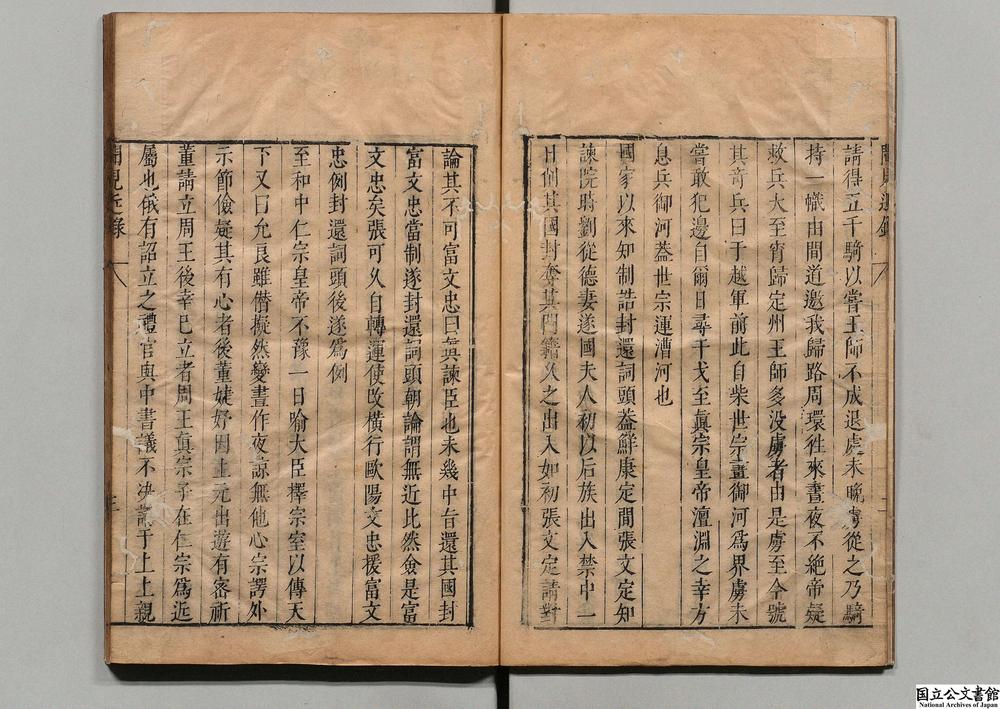 聞見近錄
請得五千騎以嘗王師不成退處未晚虜從之乃騎
持一幟由間道邀我歸路周環徃來晝夜不絶帝疑
救兵大至宵歸定州王師多没虜者由是虜至今號
其竒兵曰于越軍前此自柴世宗畫御河爲界虜未
嘗敢犯邊自爾日尋干戈至眞宗皇帝澶淵之幸方
息兵御河葢世宗運漕河也
國家以來知制誥封還詞頭葢鮮康定間張文定知
諫院時劉從德妻遂國夫人初以后族出入禁中一
日削其國封奪其門籍久之出入如初張文定請對
論其不可富文忠曰眞諫臣也未幾中旨還其國封
富文忠當制遂封還詞頭朝論謂無近比然僉是富
文忠矣張可久自轉運使改橫行歐陽文忠援富文
忠例封還詞頭後遂爲例
至和中仁宗皇帝不豫一日喻大臣擇宗室以傳天
下又曰允良雖僣擬然變晝作夜諒無他心宗諤外
示節儉疑其有心者後董婕妤因上元出遊有密祈
董請立周王後幸巳立者周王眞宗子在仁宗爲近
屬也俄有詔立之禮官與中書議不决請于上上親
聞見近錄
国立公文書館
National Archives of Japan